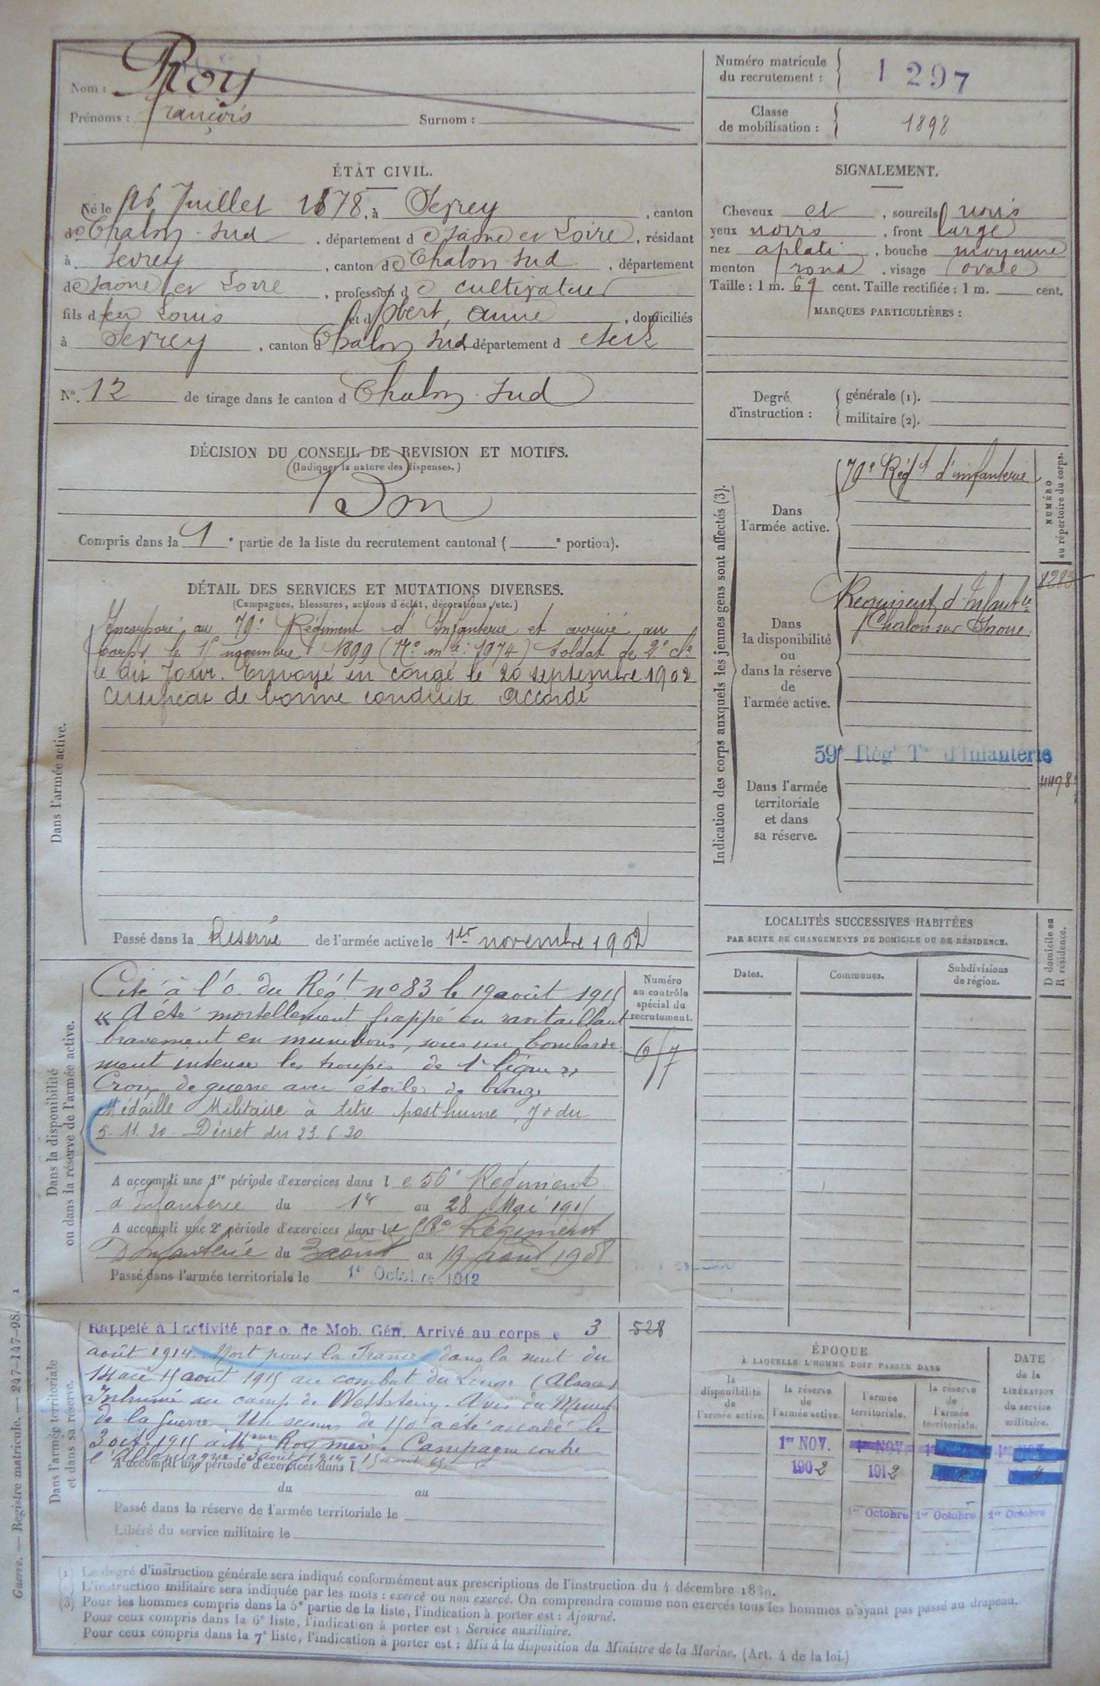 Nom : Roy
Prénoms : François Surnom :
Numéro matricule du recrutement : 1297
Classe de mobilisation : 1898
ÉTAT CIVIL.
Né le 26 Juillet 1878, à Sevrey, canton
de Chalon-Sud, département de Saône et Loire, résidant
à Sevrey, canton de Chalon Sud, département
de Saône et Loire, profession de cultivateur
fils de feu Louis et d' Anne, domiciliés
à Sevrey, canton de Chalon Sud département d
No. 12 de tirage dans le canton de Chalon-Sud
SIGNALEMENT.
Cheveux et, sourcils noirs
yeux noirs, front large
nez aplati, bouche moyenne
menton rond, visage ovale
Taille : 1 m. 69 cent. Taille rectifiée : 1 m. cent.
MARQUES PARTICULIÈRES :
Degré d'instruction :
générale (1).
militaire (2).
DÉCISION DU CONSEIL DE REVISION ET MOTIFS.
(Indiquer la nature des dispenses.)
Bon
Compris dans la 1e partie de la liste du recrutement cantonal ( e portion).
DÉTAIL DES SERVICES ET MUTATIONS DIVERSES.
(Campagnes, blessures, actions d'éclat, décorations, etc.)
Dans l'armée active.
Incorporé au 79e Régiment d'Infanterie et arrivé au
corps le novembre 1899 (No mle 1974) Soldat de 2e cl.
le dit jour. Envoyé en congé le 20 septembre 1902
Certificat de bonne conduite accordé
Passé dans la Réserve de l'armée active le 1er novembre 1902
Indication des corps auxquels les jeunes gens sont affectés (3).
NUMÉRO au répertoire du corps.
Dans l'armée active.
79e Régt d'infanterie
Dans la disponibilité ou dans la réserve de l'armée active.
Régiment d'Infante
Chalon sur Saône
59e Régt Tal d'Infanterie
Dans l'armée territoriale et dans sa réserve.
LOCALITÉS SUCCESSIVES HABITÉES
PAR SUITE DE CHANGEMENTS DE DOMICILE OU DE RÉSIDENCE.
Dates. Communes. Subdivisions de région.
D domicile ou R résidence.
Dans la disponibilité ou dans la réserve de l'armée active.
Numéro au contrôle spécial du recrutement.
Cité à l'o du Régt no 83 le 19 août 1915
« A été mortellement frappé en ravitaillant
bravement en munitions, sous un bombarde
ment intense les troupes de 1e ligne »
Croix de guerre avec étoile de bronze
Médaille Militaire à titre posthume, Jo du
5.11.20 Décret du 23.6.20
A accompli une 1re période d'exercices dans le 56e Régiment
d'Infanterie du 1er au 28 Mai
A accompli une 2e période d'exercices dans le Régiment
D'Infanterie du 3 août au 19 août 1908
Passé dans l'armée territoriale le 1er Octobre 1912
Dans l'armée territoriale et dans sa réserve.
Rappelé à l'activité par o. de Mob. Gén. Arrivé au corps le 3 528
août 1914. Mort pour la France dans la nuit du
14 au 15 août 1915 au combat du Linge (Alsace)
Inhumé au camp de Wettstein. Avis du Minist
de la Guerre. Un secours de 150 a été accordé le
3 oct 1915 à Mme Roy mère. Campagne contre
l'Allemagne : 3 août 1914 - 15 août
A accompli une période d'exercices dans l
du au
Passé dans la réserve de l'armée territoriale le
Libéré du service militaire le
ÉPOQUE
À LAQUELLE L'HOMME DOIT PASSER DANS
la disponibilité de l'armée active.
la réserve de l'armée active.
l'armée territoriale.
la réserve de l'armée territoriale.
DATE de la LIBÉRATION du service militaire.
1er NOV. 1er NOV.
1902 1912
1er Octobre 1er Octobre 1er Octobre
(1) Le degré d'instruction générale sera indiqué conformément aux prescriptions de l'instruction du 4 décembre 1889.
L'instruction militaire sera indiquée par les mots : exercé ou non exercé. On comprendra comme non exercés tous les hommes n'ayant pas passé au drapeau.
(3) Pour les hommes compris dans la 5e partie de la liste, l'indication à porter est : Ajourné.
Pour ceux compris dans la 6e liste, l'indication à porter est : Service auxiliaire.
Pour ceux compris dans la 7e liste, l'indication à porter est : Mis à la disposition du Ministre de la Marine. (Art. 4 de la loi.)
Guerre. — Registre matricule. — 247-147-98. 1